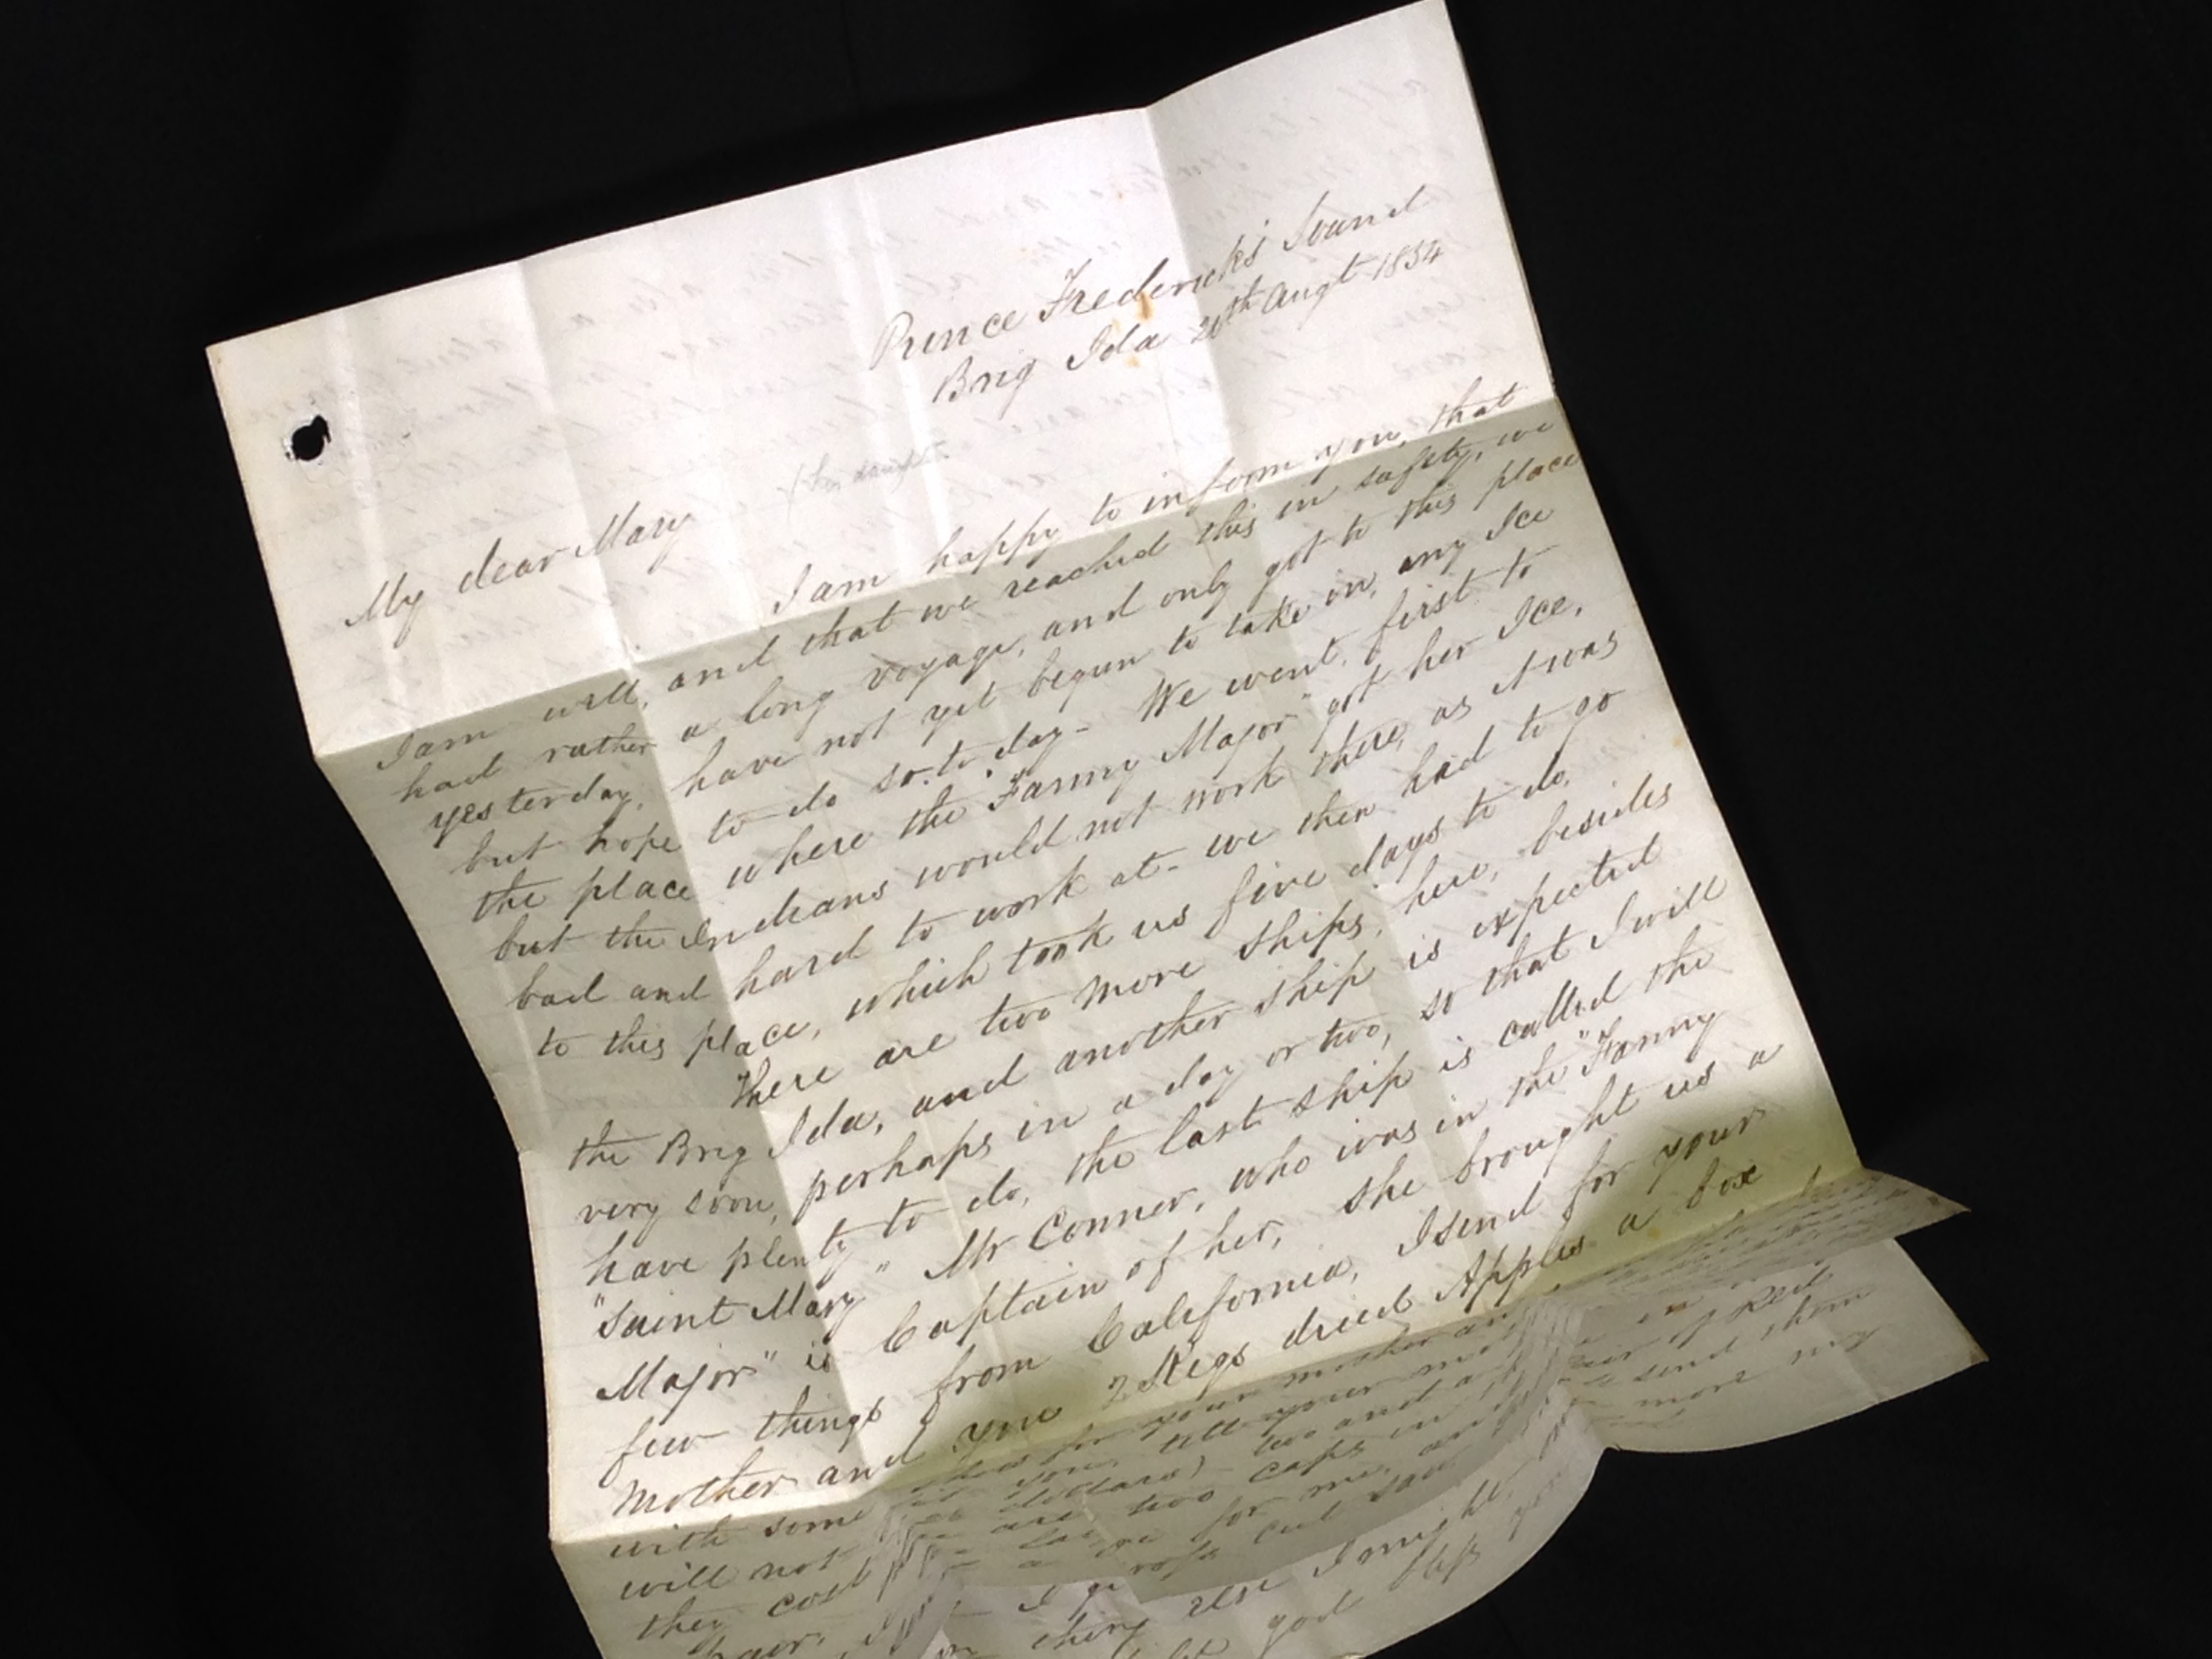 Prince Frederick's Sound
Brig Ida 20th Augt 1854
My dear Mary
I am happy to inform you, that
I am well, and that we reached this in safety, we
had rather a long voyage, and only got to this place
yesterday, have not yet begun to take in, any Ice
but hope to do so to day - We went first to
the place where the "Fanny Major" got her Ice,
but the Indians would not work there, as it was
bad and hard to work at - we then had to go
to this place, which took us five days to do.
There are two more ships, here, besides
the Brig Ida, and another ship is expected
very soon, perhaps in a day or two, so that I will
have plenty to do, the last ship is called the
"Saint Mary" Mr Conner, who was in the "Fanny
Major" is Captain of her, she brought us a
few things from California, I send for your
Mother and you 2 Kegs dried Apples a box
with some for your mother and
will not you, tell your
they cost dollars) two and a
hair, are two caps in
for me, and
cut
thing else I might
god bless you
pair of Red
send them
more my